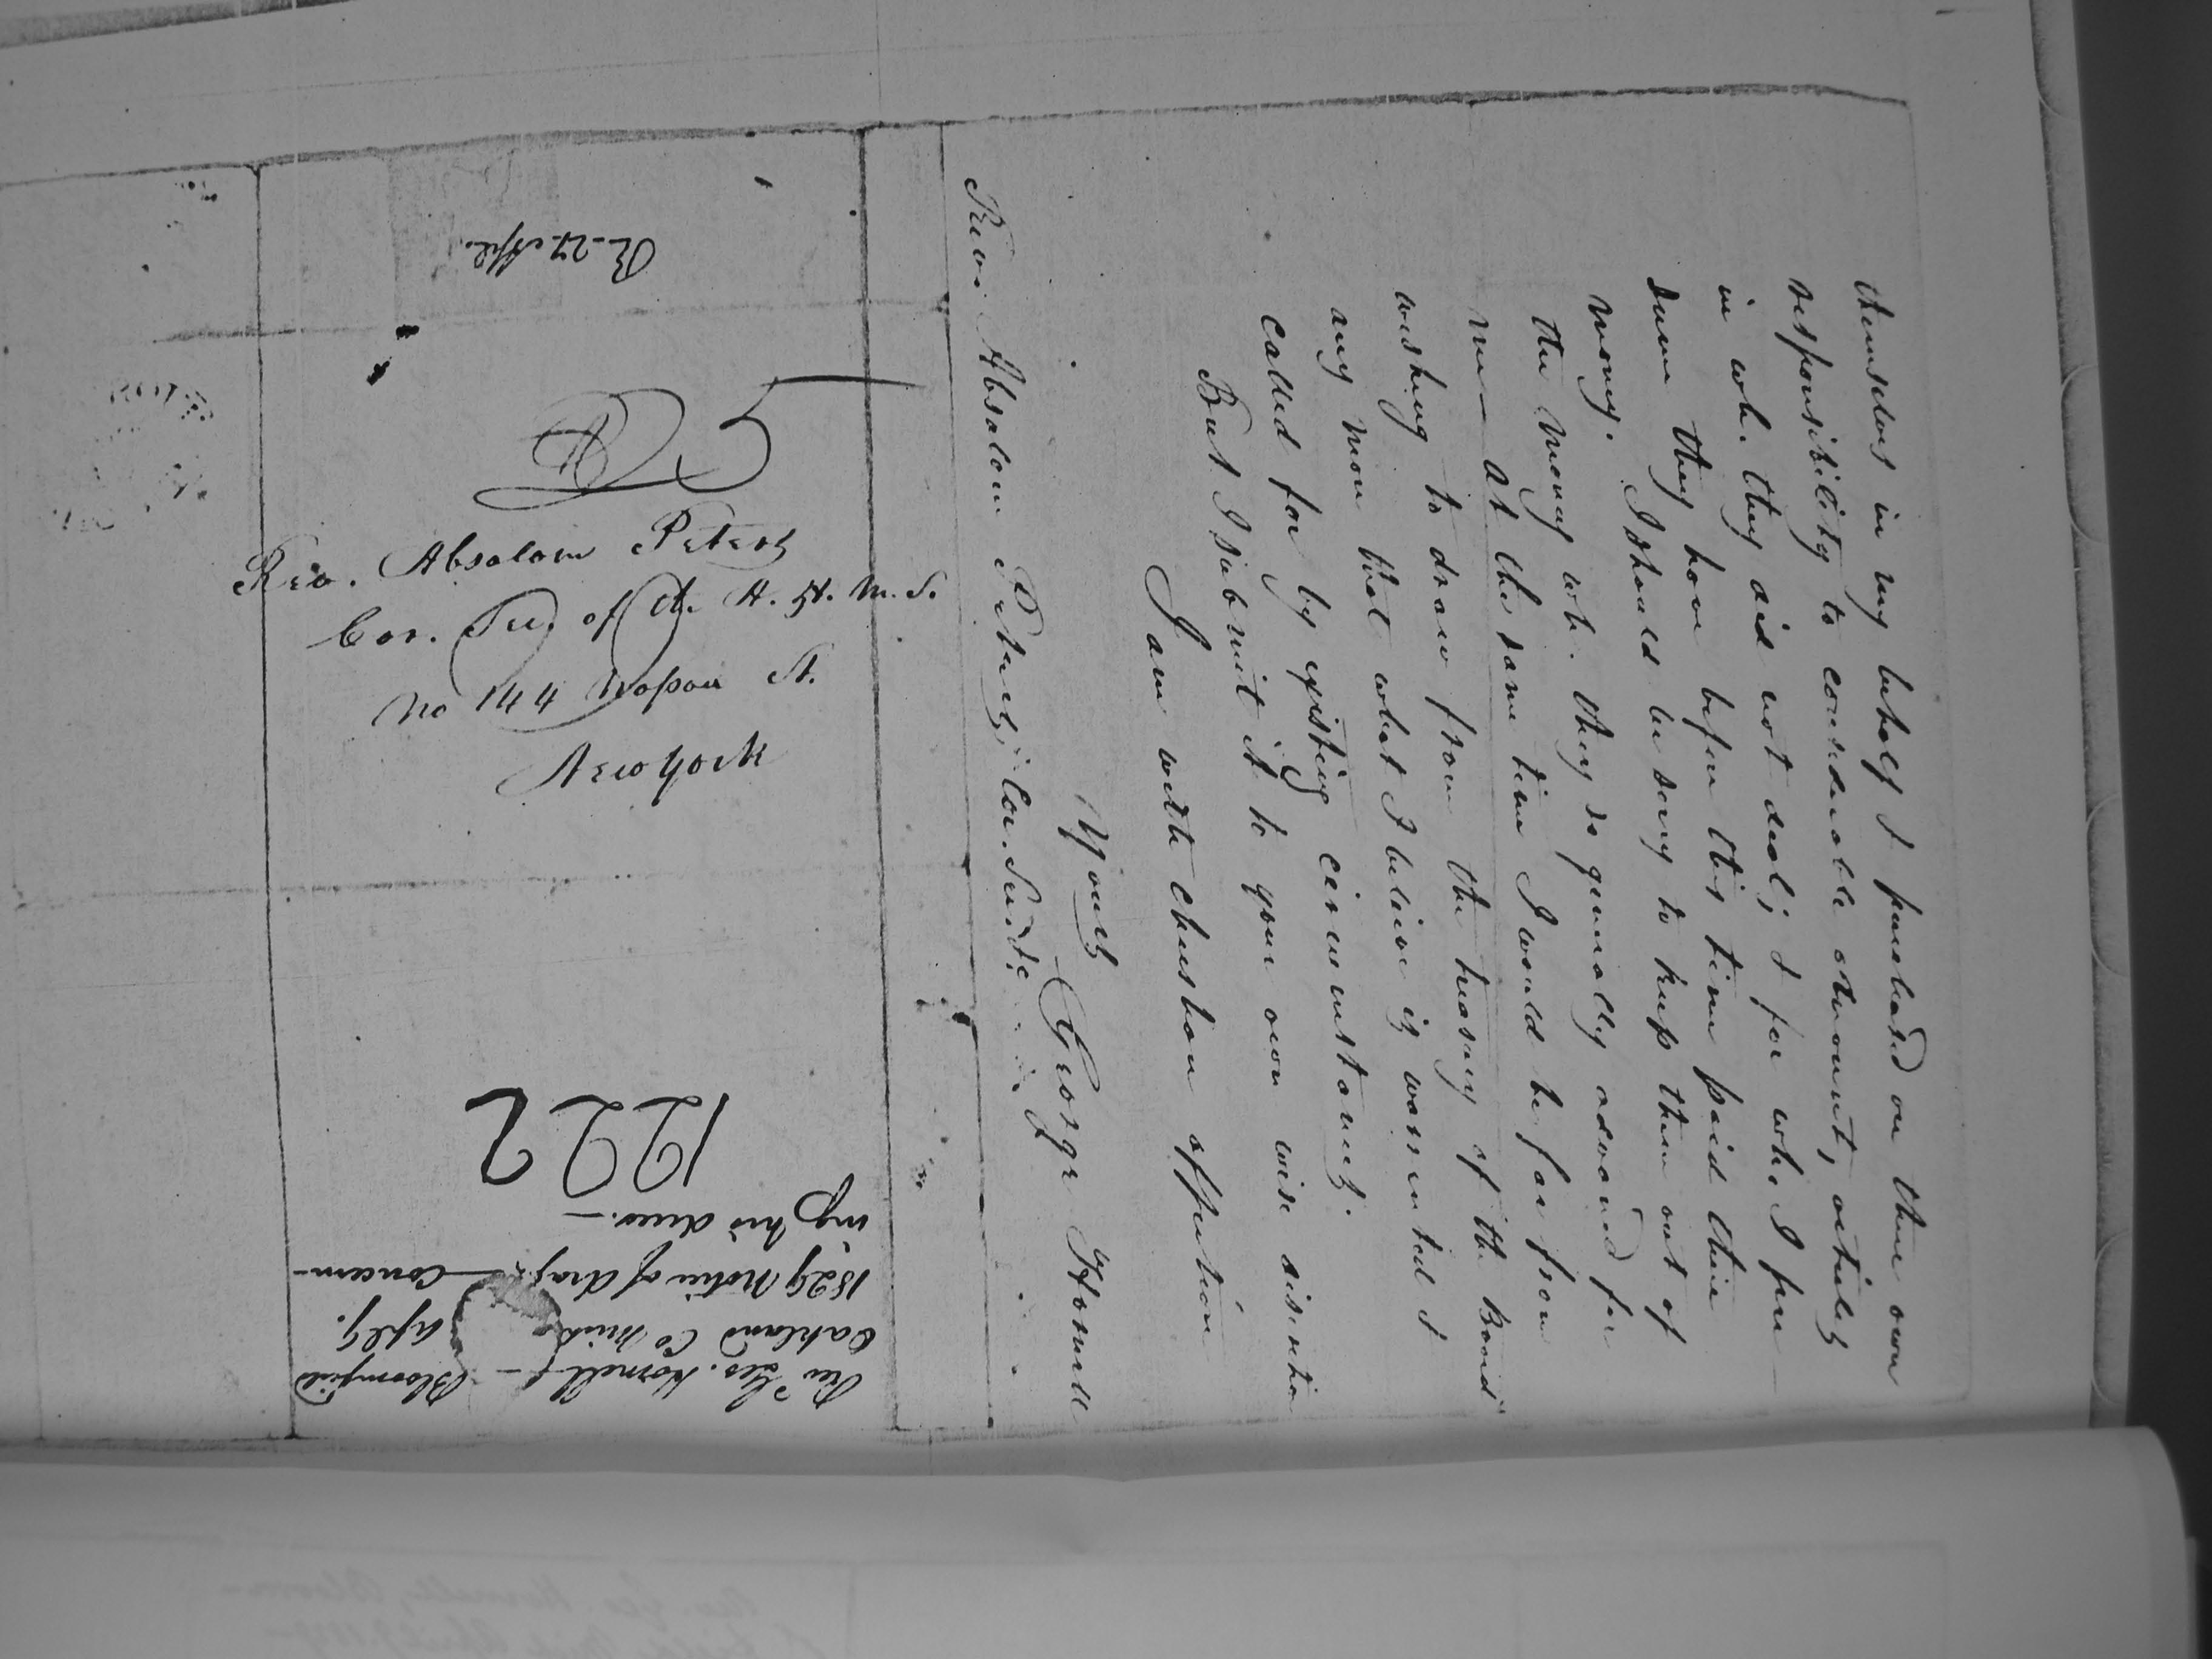 themselves in my behalf I purchased on their own
responsibility to considerable amount, articles
in wh. they did not deal; & for wh. I pre-
sume they have before this time paid their
money. I should be sorry to keep them out of
the money wh. they so generally advanced for
me — At the same time I would be far from
wishing to draw from the treasury of the Board
any more that what I believe is warrented &
called for by existing circumstances.
But I submit it to your own wise
I am with christian affection
Yours
George Hornell
Revd. Absalom Peters, Cor. Secy.
R. 27 Apl.
25
Rev. Absalom Peters
Cor. Secy of the A. H. M. S.
No 144 Nassau St.
New York
1222
Rev Geo. Hornell — Bloomfield
Oakland Co Mich Apl 9.
1829 Notice of draft concern-
ing his dues.—